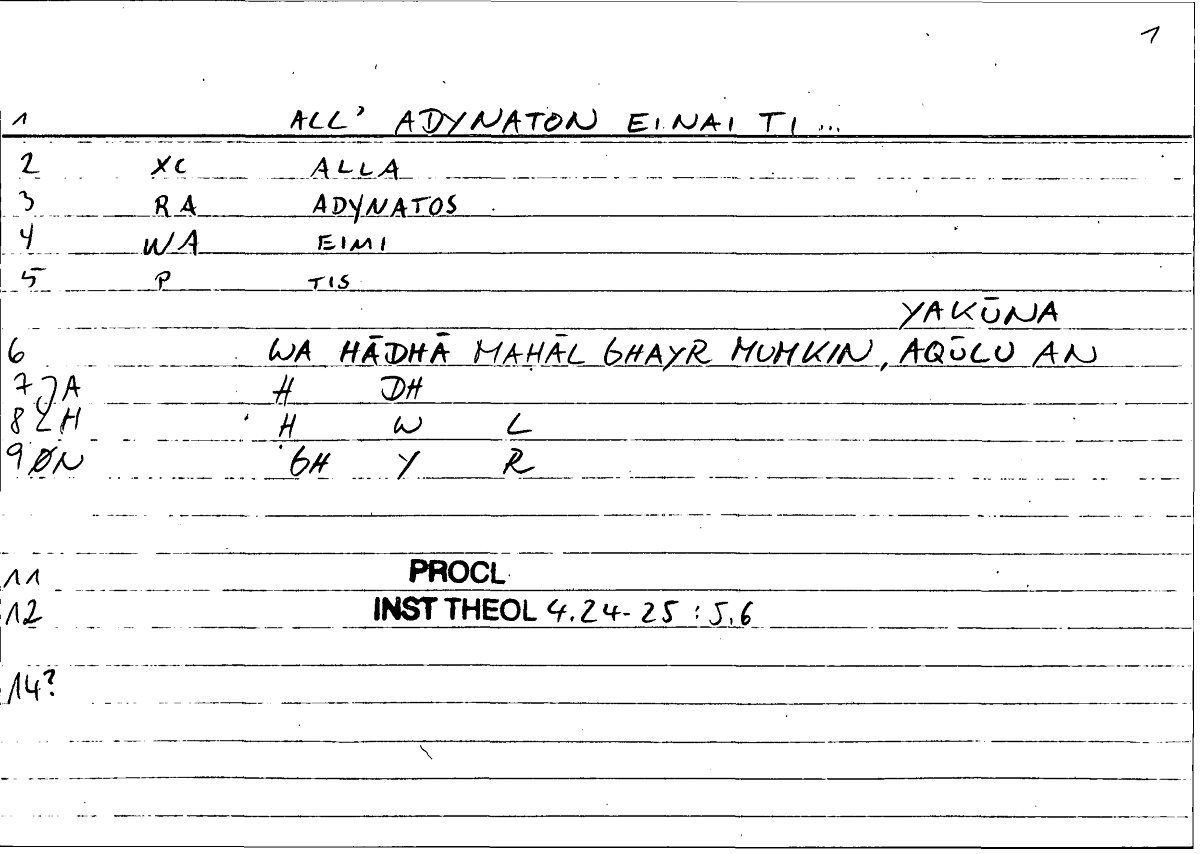 1
1 ALL' ADYNATON EINAI TI ...
2 XC ALLA
3 RA ADYNATOS
4 WA EIMI
5 P TIS
YAKŪNA
6 WA HĀDHĀ MAḤĀL GHAYR MUMKIN, AQŪLU AN
7 JA H DH
8 LH H W L
9 ØN GH Y R
11 PROCL
12 INST THEOL 4.24-25 : 5.6
14?